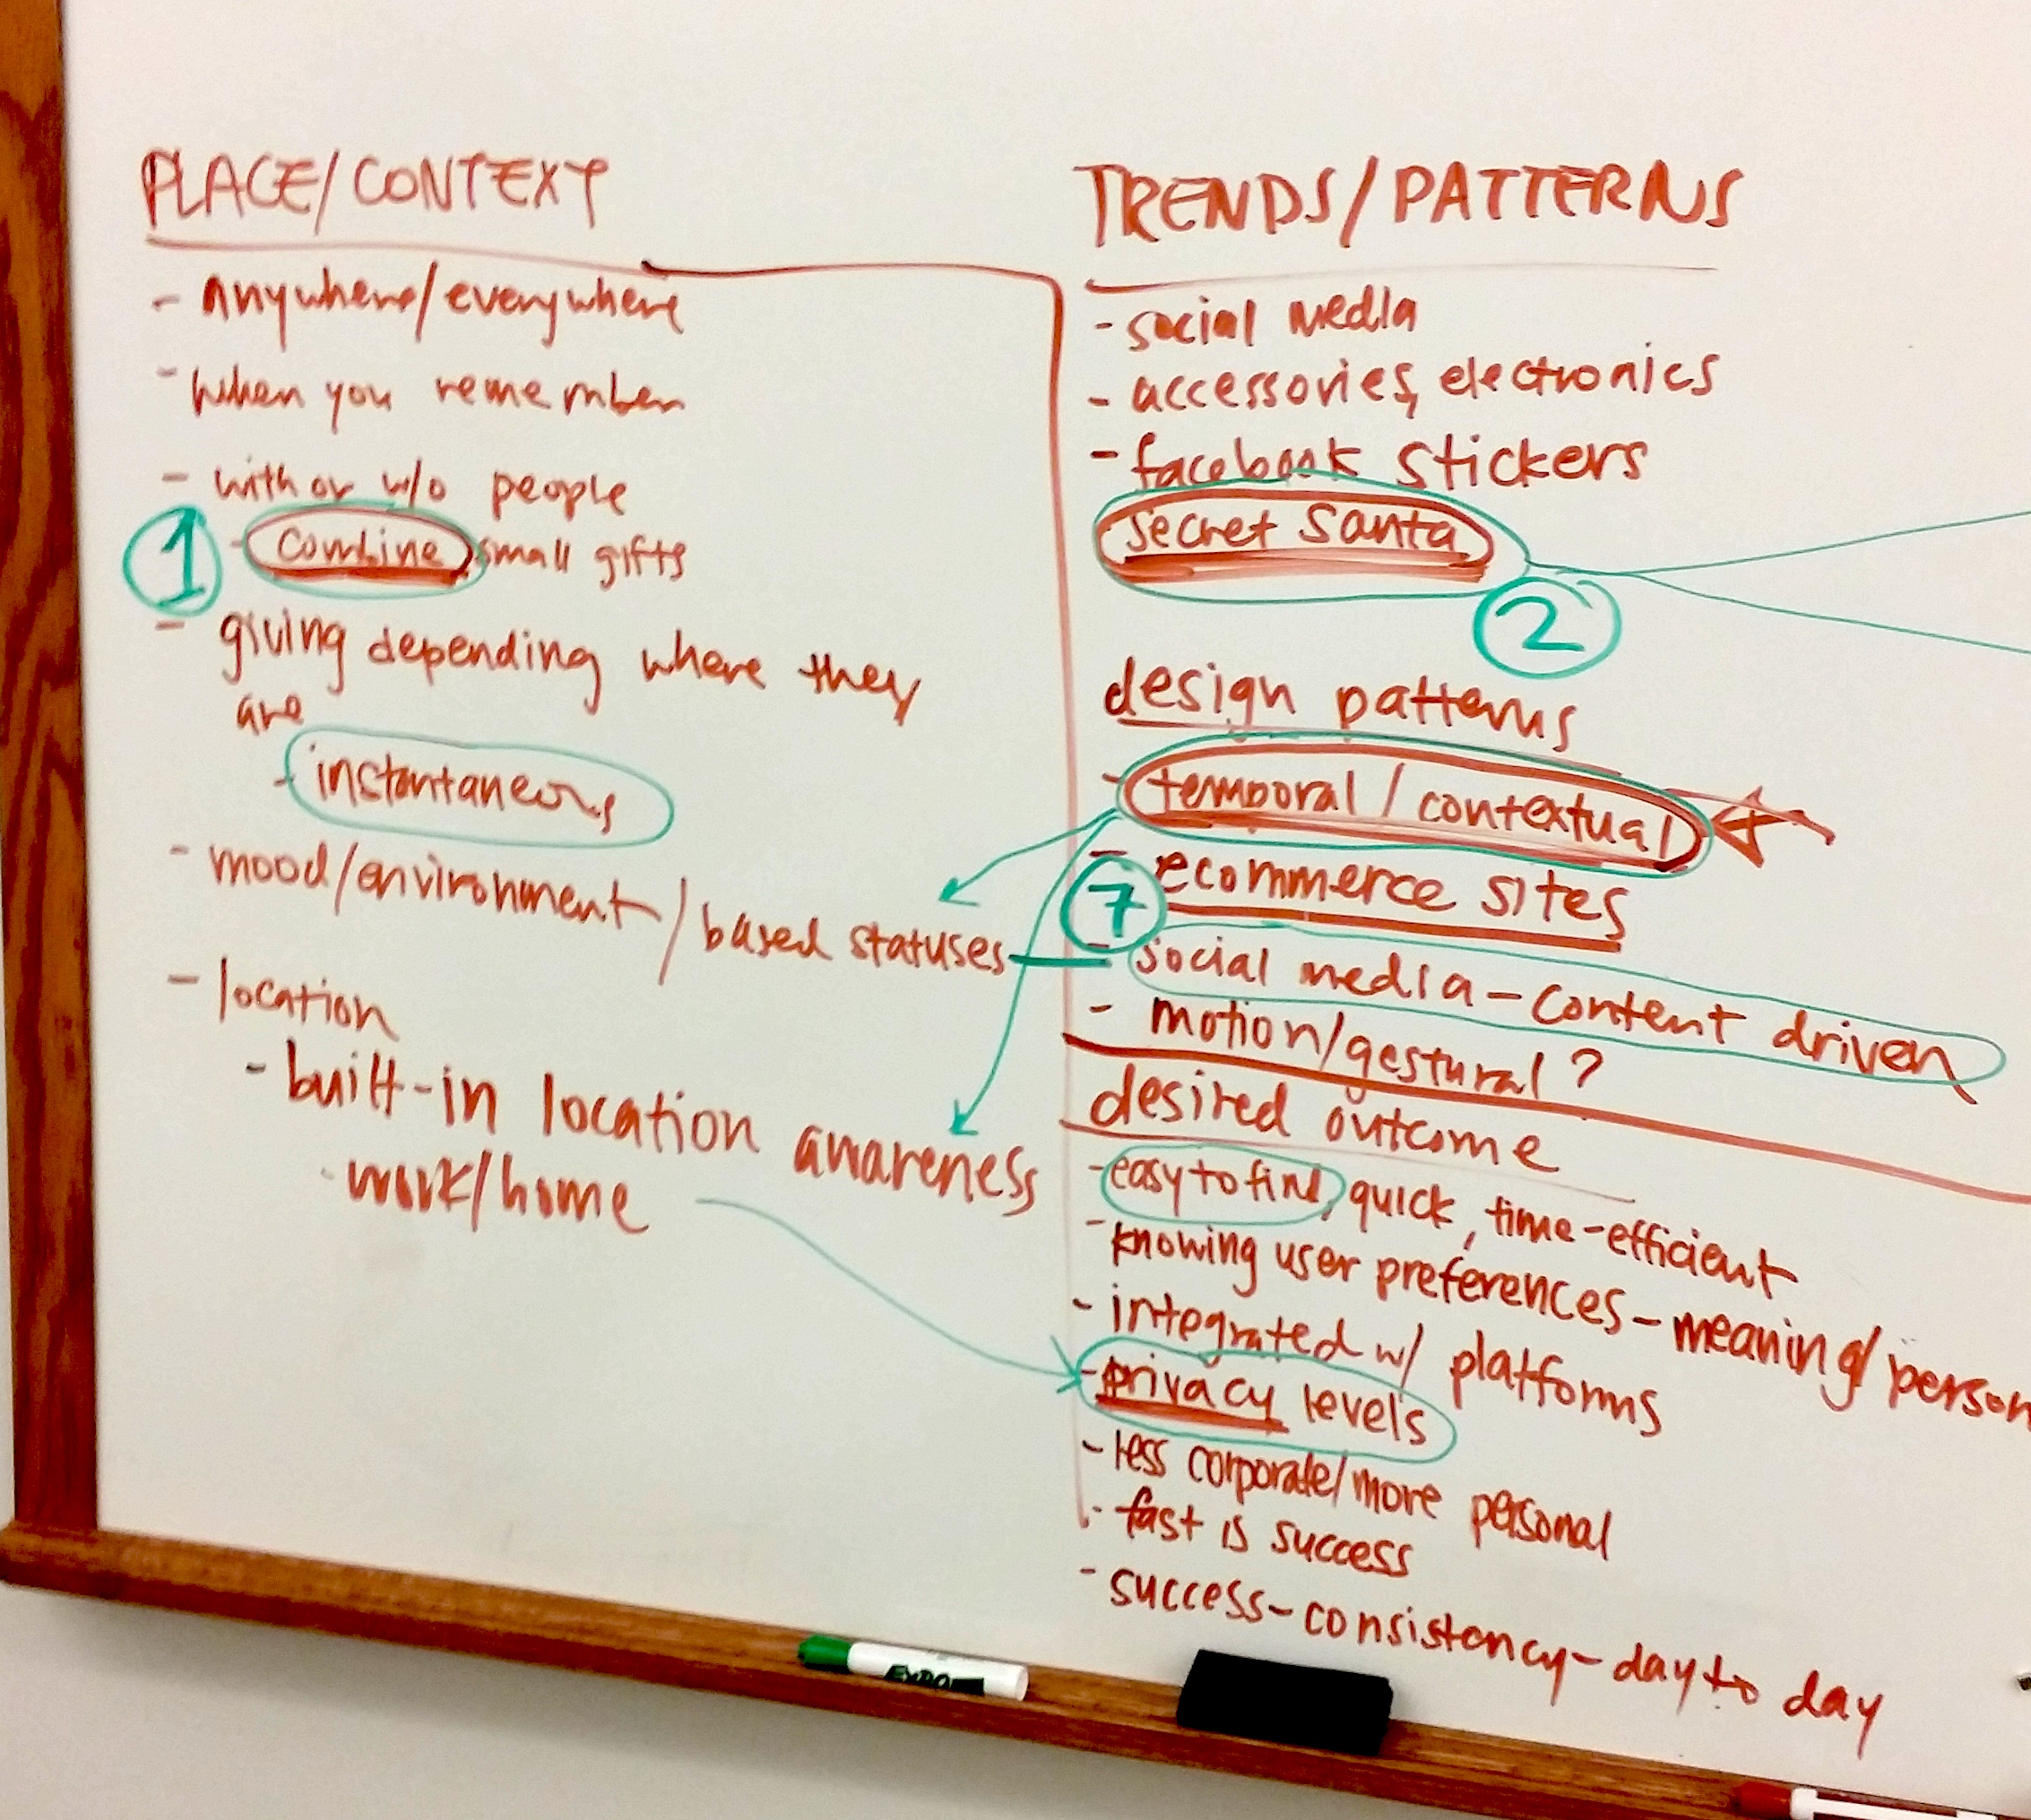 PLACE/CONTEXT
- anywhere/everywhere
- when you remember
- with or w/o people
1
- combine small gifts
- giving depending where they
are
- instantaneous
- mood/environment/based statuses
- location
- built-in location awareness
· work/home
TRENDS/PATTERNS
- social media
- accessories, electronics
- facebook stickers
secret santa
2
design patterns
- temporal/contextual
- ecommerce sites
7
- social media - content driven
- motion/gestural?
desired outcome
- easy to find, quick, time-efficient
- knowing user preferences - meaning/person
- integrated w/ platforms
- privacy levels
- less corporate/more personal
- fast is success
- success - consistency - day to day
EXPO